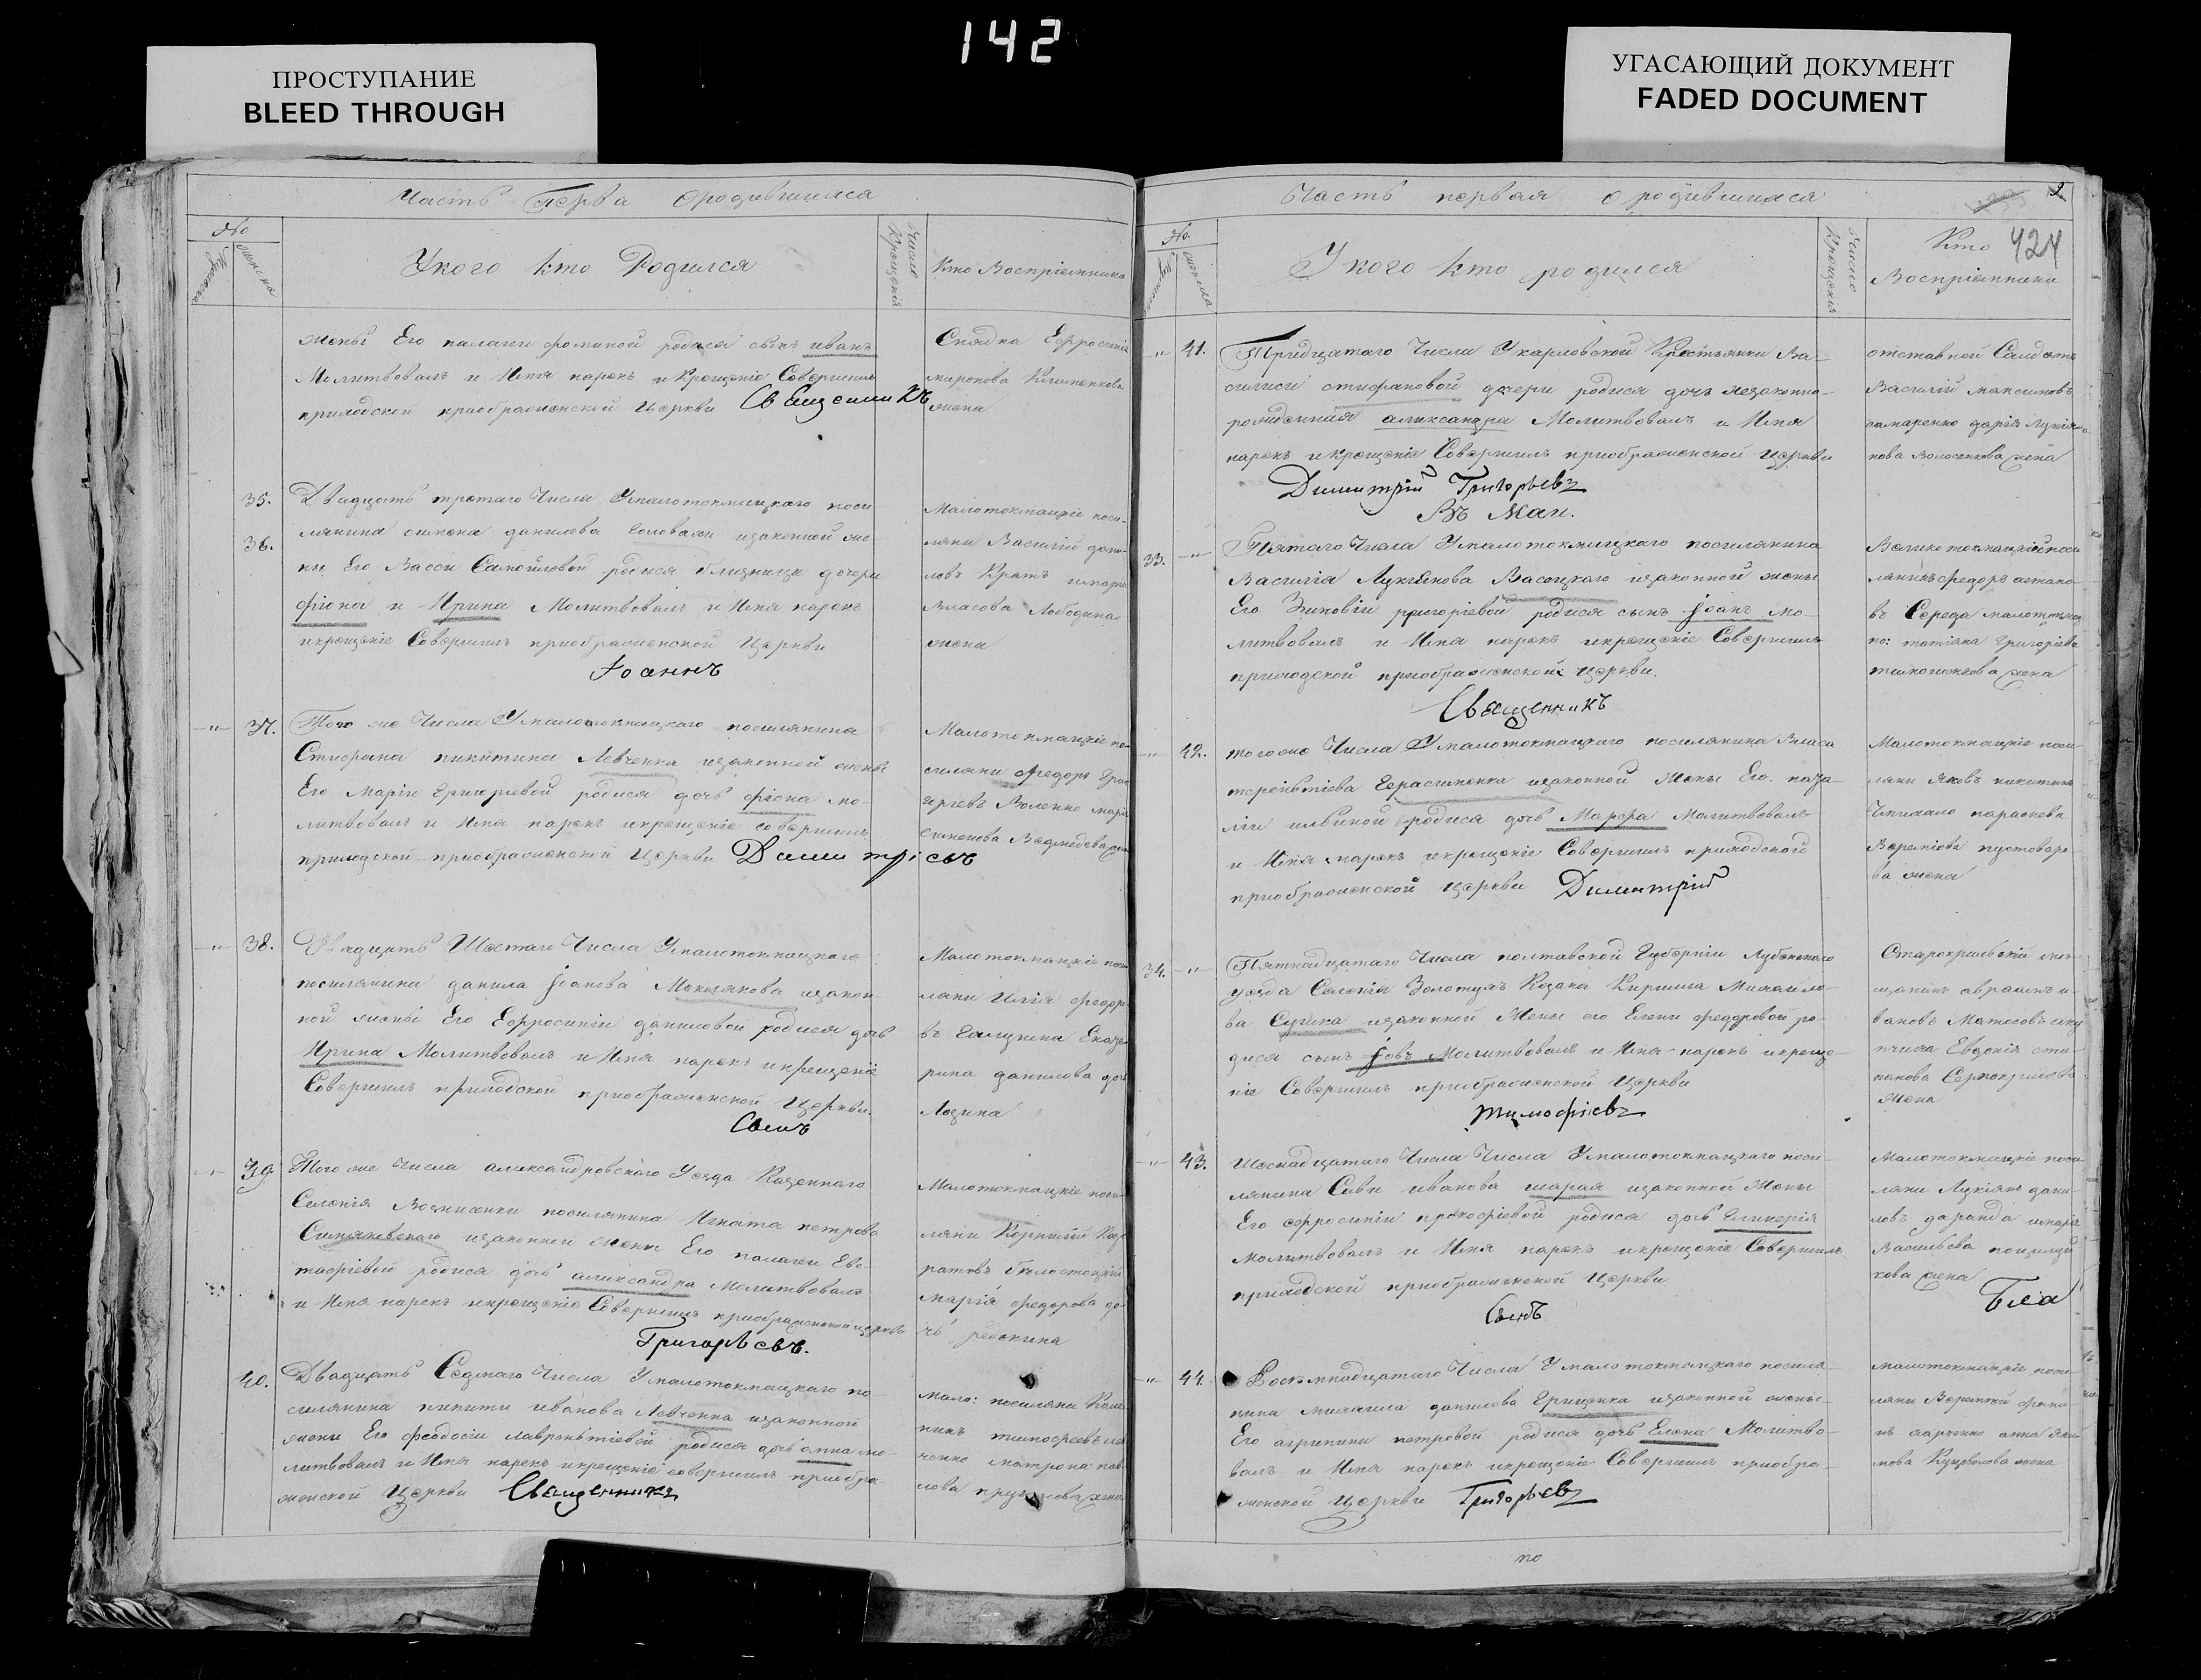 142
ПРОСТУПАНИЕ
BLEED THROUGH
УГАСАЮЩИЙ ДОКУМЕНТ
FADED DOCUMENT
Часть Перва о родившихся
№
Мужеска
женска
У кого кто Родился
Число Крещения
Кто Восприемники
жены Его палагеи фоминой родися сынъ иванъ
Молитвовалъ и Имя нарекъ и Крещение Совершилъ
приходской приображенской Церкви Священникъ
Ефросиния
миронова
жена
35.
Двадцать третаго Числа У малотокмацкаго посе-
36.
лянина симона данилова Головахи изаконной же
ны Его Васси Самойловой родися близници дочери
фіона и Ирина Молитвовалъ и Имя нарекъ
икрещеніе Совершилъ приображенской Церкви
Іоаннъ
Малотокмацкіе посе-
ляни Василій дани-
ловъ Кратъ имарія
Власова Лободина
жена
-"- 37.
Того же Числа У малотокмацкаго поселянина
Стефана никитина Левченка изаконной жены
Его Маріи Григорьевой родися дочь фіона мо-
литвовалъ и Имя нарекъ икрещеніе совершилъ
приходской приображенской Церкви Димитріевъ
Малотокмацкіе по-
селяни федоръ Гри-
горьевъ Воленко марія
семенова
-"- 38.
Двадцать Шестаго Числа У малотокмацкаго
поселянина данила Іоанова изакон-
ной жены Его Ефросиніи даниловой родися дочь
Ирина Молитвовалъ и Имя нарекъ икрещеніе
Совершилъ приходской приображенской Церкви.
Сынъ
Малотокмацкіе посе-
ляни Илія федоро-
въ Галушка Екате-
рина данилова дочь
Лозина
-"- 39
Того же Числа александровскаго Уезда Казеннаго
Селенія Вознесенки поселянина Игната петрова
изаконной жены Его палагеи Евс-
тафіевой родися дочь александра Молитвовалъ
и Имя нарекъ икрещеніе Совершилъ приображенской церкви
Григорьевъ.
Малотокмацкіе посе-
ляни Корнилій Конд-
ратовъ белостоцкій
марія федорова до-
чь редькина
40.
Двадцать Седмаго Числа У малотокмацкаго по-
селянина никити иванова Левченка изаконной
жени Его феодосіи лаврентіевой родися дочь анна мо-
литвовалъ и Имя нарекъ икрещеніе совершилъ приобра-
женской Церкви Священникъ
мало: поселяни
тимофеевъ
матрона пав-
лова жена
Часть первая о родившихся
424
№
женска
У кого кто родился
Число Крещения
Кто
Восприемники
-"- 41.
Тридцатаго Числа У карловской Крестьянки Ва-
силиси стифановой дочери родися дочь незаконно-
рожденная александра Молитвовалъ и Имя
нарекъ и крещеніе Совершилъ приображенской Церкви
Димитрій Григорьевъ
отставной Салдатъ
Василій максимовъ
самаренко дарія Лукія-
нова Волосенкова жена
Въ Маи.
33. -"-
Пятаго Числа У малотокмацкаго поселянина
Василія Лукіянова Васецкаго изаконной жены
Его Зиновіи григоріевой родися сынъ Іоанъ мо-
литвовалъ и Имя нарекъ икрещеніе Совершилъ
приходской приображенской церкви.
Священникъ
Великотокмацкій посе
лянинъ федоръ остапо-
въ Середа малотокмац
по: татіяна Григоріева
тимошенкова жена
-"- 42.
того же Числа У малотокмацкаго поселянина Власа
терентіева Герасименка изаконной жены Его пала-
гіи ильиной родися дочь Марфа Молитвовалъ
и Имя нарекъ икрещеніе Совершилъ приходской
приображенской церкви Димитрій
Малотокмацкіе посе-
ляни Яковъ никитинъ
параскева
пустовара-
ва жена
34. -"-
Пятнадцатаго Числа полтавской Губерніи Лубенскаго
уезда Селенія Золотухъ Козака Кирилла Михайло-
ва изаконной Жены его Елены федоровой ро-
дися сынъ Іовъ Молитвовалъ и Имя нарекъ икреще-
ніе Совершилъ приображенской Церкви
Тимофіевъ
Старокримскій ме-
щанинъ авраамъ и-
вановъ
Евдокія сти-
панова
жена
-"- 43.
Шеснадцатаго Числа Числа У малотокмацкаго посе-
лянина Сави иванова шарая изаконной Жены
Его ефросиніи прокофіевой родися дочь Гликерія
молитвовалъ и Имя нарекъ икрещеніе Совершилъ
приходской приображенской Церкви
Сынъ
Малотокмацкіе посе-
ляни Лукіянъ дани-
ловъ даранда имарія
Васильева
кова жена
-"- 44.
Восемнадцатаго Числа У малотокмацкаго поселя-
нина михаила данилова Гриценка изаконной жены
Его агрипини петровой родися дочь Елена Молитво-
валъ и Имя нарекъ икрещеніе Совершилъ приобра-
женской Церкви Григорьевъ
малотокмацкіе посе-
ляни
анна яки
мова жена
по